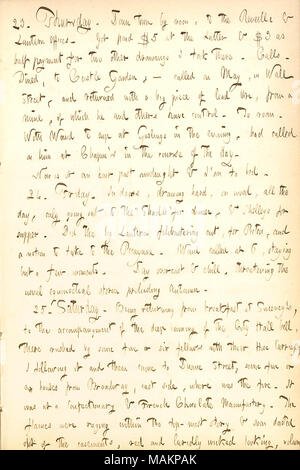 23. Thursday. Down town by noon, to the Reveille &
Lantern offices. Got paid $5 at the latter & $3 as
half payment for two other drawings I took there. Calls.
Dined, to Castle Garden, — called on May, in Wall
Street, and returned with a big piece of lead ore, from a
mine, of which he and others have control. To room.
With Waud to a at Goslings in the evening, had called
on him at Chapin's in the course of the day.
Now is it an hour past midnight & I'm to bed.
24. Friday. In doors, drawing hard, on wood, all the
day, only going out to the Shades for dinner, & Sholleys for
supper. Did the Lantern for Poter, and
a to take to the Picayune. Waud called at 6, staying
but a few moments. Day overcast & chill, threatening the
usual equinoctial storm preceding Autumn.
25. Saturday. Being returning from breakfast at Sweeney's,
to the accompaniment of the deep of the City Hall bell,
there rushed by some five or six fellows with their Hose carriage,
I following it and them came to Duane Street, some five or
six houses from Broadway, east side, where was the fire. It
was at a Confectionary & French Chocolate Manufactory. The
flames were raging within the top-most story, & soon darted
out of the casements, red and luridly wicked looking, volumes
alamy
Image ID: MAKPAK
www.alamy.com